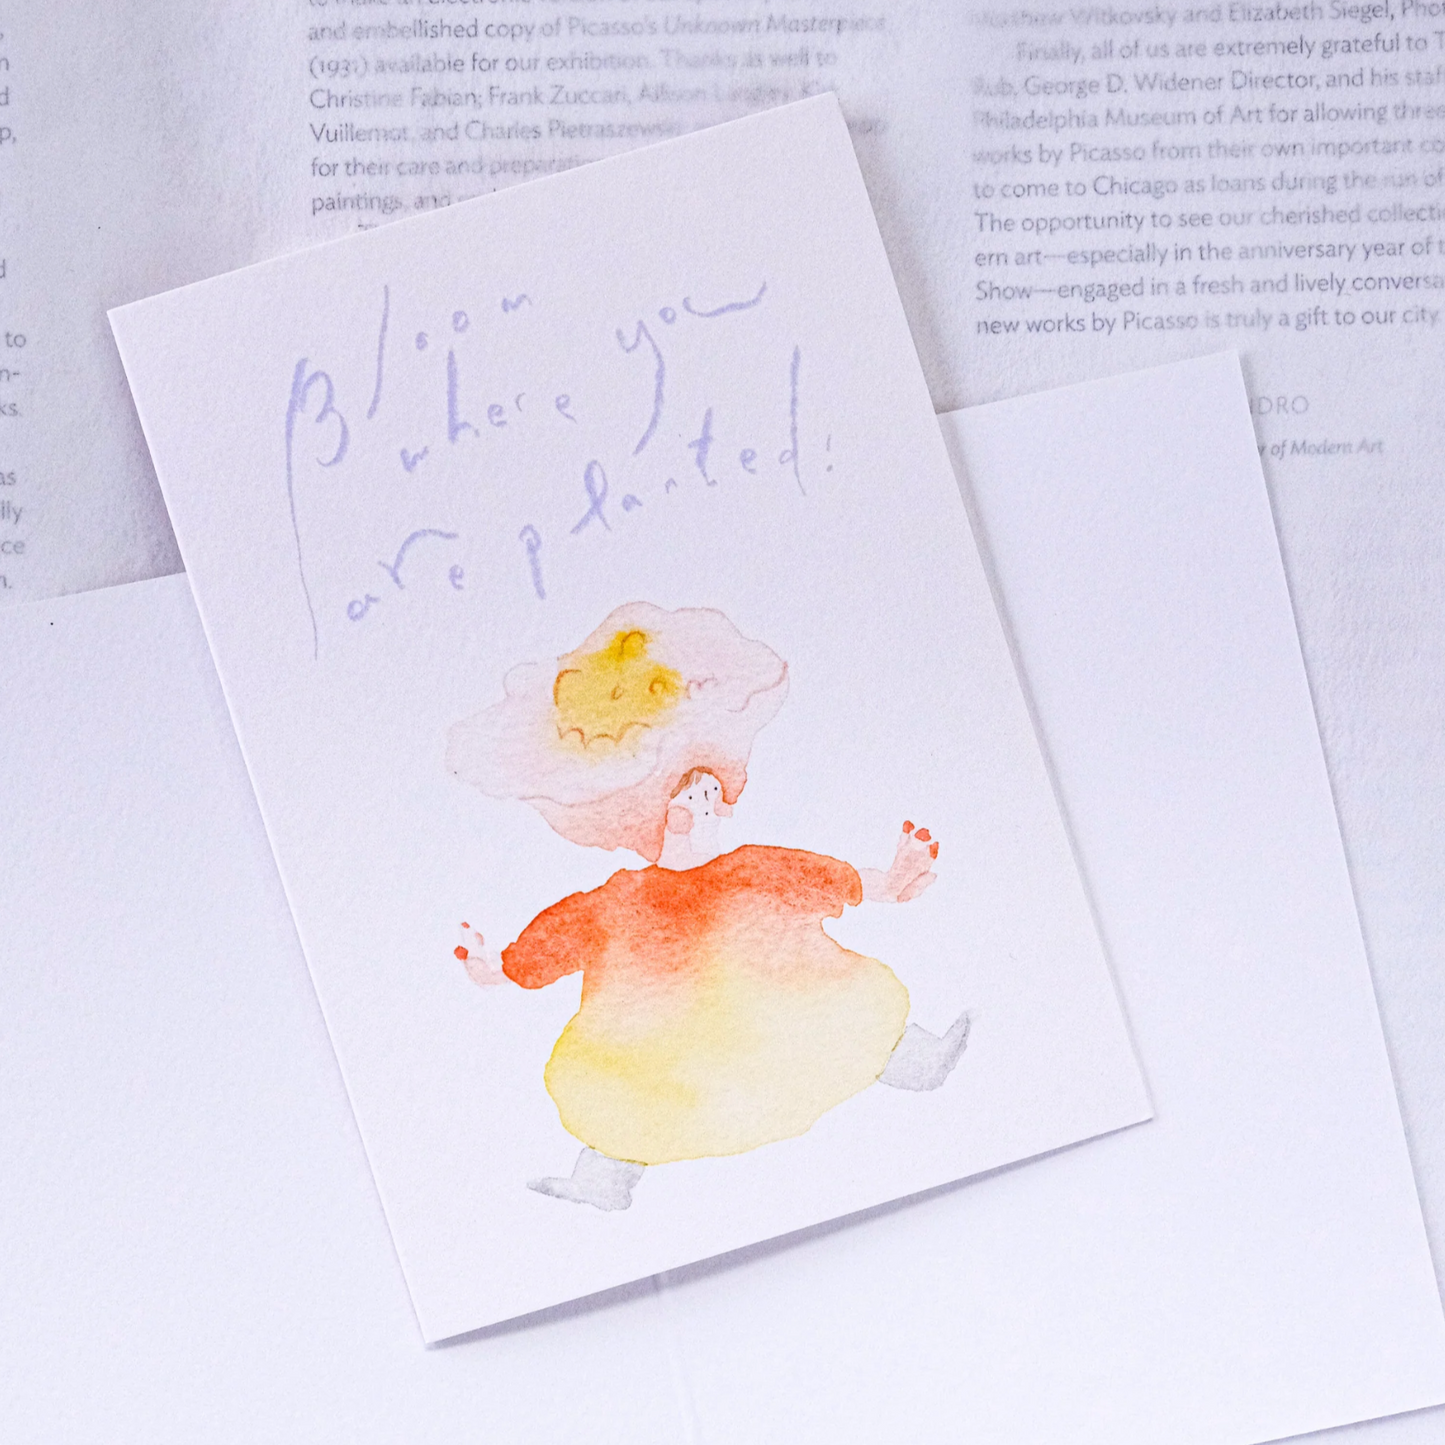 and embellished copy of Picasso's Unknown Masterpiece
(1931) available for our exhibition. Thanks as well to
Christine Fabian; Frank Zuccari,
Vuillemot, and Charles Pietraszewski
for their care and
paintings, and
Matthew Witkovsky and Elizabeth Siegel,
Finally, all of us are extremely grateful to
Rub, George D. Widener Director, and his
Philadelphia Museum of Art for allowing three
works by Picasso from their own important
to come to Chicago as loans during the run of
The opportunity to see our cherished
ern art—especially in the anniversary year of
Show—engaged in a fresh and lively
new works by Picasso is truly a gift to our city
of Modern Art
to
Bloom
where you
are planted!